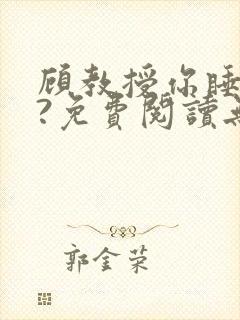 顾教授你睡
?免費閱讀
郭金荣